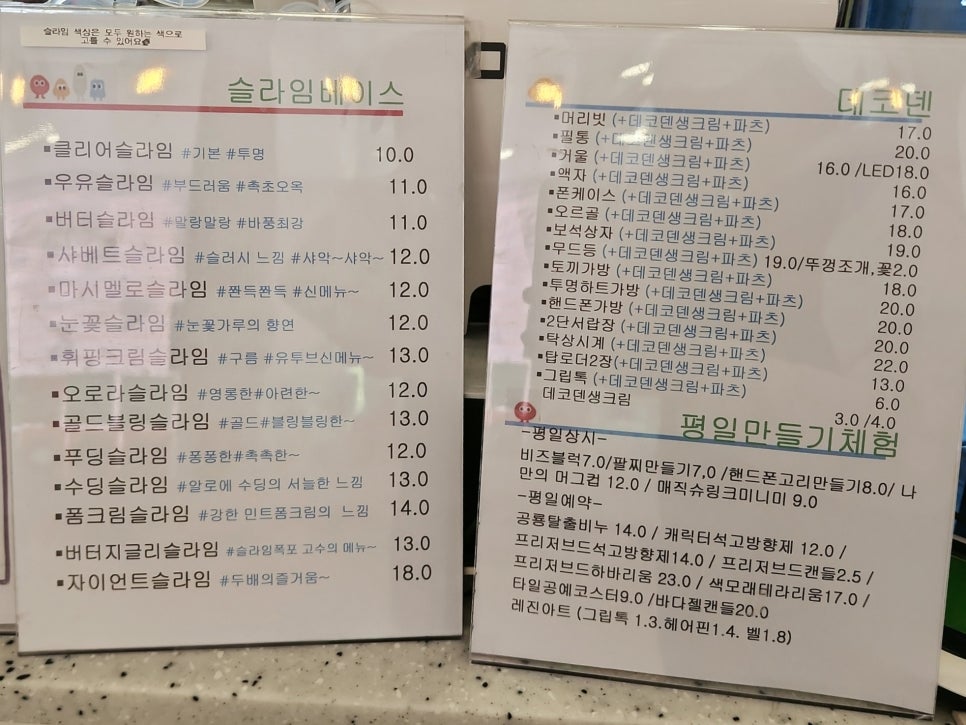 슬라임 색상은 모두 원하는 색으로
고를 수 있어요
슬라임베이스
▪클리어슬라임 #기본 #투명 10.0
▪우유슬라임 #부드러움 #촉초오옥 11.0
▪버터슬라임 #말랑말랑 #바풍최강 11.0
▪샤베트슬라임 #슬러시 느낌 #샤악~샤악~ 12.0
▪마시멜로슬라임 #쫜득쫜득 #신메뉴~ 12.0
▪눈꽃슬라임 #눈꽃가루의 향연 12.0
▪휘핑크림슬라임 #구름 #유투브신메뉴~ 13.0
▪오로라슬라임 #영롱한#아련한~ 12.0
▪골드블링슬라임 #골드#블링블링한~ 13.0
▪푸딩슬라임 #퐁퐁한#촉촉한~ 12.0
▪수딩슬라임 #알로에 수딩의 서늘한 느낌 13.0
▪폼크림슬라임 #강한 민트폼크림의 느낌 14.0
▪버터지글리슬라임 #슬라임폭포 고수의 메뉴~ 13.0
▪자이언트슬라임 #두배의즐거움~ 18.0
데코덴
▪머리빗 (+데코덴생크림+파츠) 17.0
▪필통 (+데코덴생크림+파츠) 20.0
▪거울 (+데코덴생크림+파츠) 16.0 /LED18.0
▪액자 (+데코덴생크림+파츠) 16.0
▪폰케이스 (+데코덴생크림+파츠) 17.0
▪오르골 (+데코덴생크림+파츠) 18.0
▪보석상자 (+데코덴생크림+파츠) 19.0
▪무드등 (+데코덴생크림+파츠) 19.0/뚜껑조개,꽃2.0
▪토끼가방 (+데코덴생크림+파츠) 18.0
▪투명하트가방 (+데코덴생크림+파츠) 20.0
▪핸드폰가방 (+데코덴생크림+파츠) 20.0
▪2단서랍장 (+데코덴생크림+파츠) 20.0
▪탁상시계 (+데코덴생크림+파츠) 22.0
▪탑로더2장(+데코덴생크림+파츠) 13.0
▪그립톡 (+데코덴생크림+파츠) 6.0
데코덴생크림 3.0 /4.0
평일만들기체험
-평일상시-
비즈블럭7.0/팔찌만들기7,0 /핸드폰고리만들기8.0/ 나
만의 머그컵 12.0 / 매직슈링크미니미 9.0
-평일예약-
공룡탈출비누 14.0 / 캐릭터석고방향제 12.0 /
프리저브드석고방향제14.0 / 프리저브드캔들2.5 /
프리저브드하바리움 23.0 / 색모래테라리움17.0 /
타일공예코스터9.0 /바다젤캔들20.0
레진아트 (그립톡 1.3.헤어핀1.4. 벨1.8)